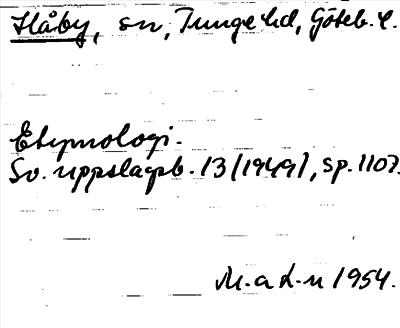 Håby, sn, Tunge hd, Göteb. l.
Etymologi.
Sv. uppslagsb. 13 (1949), sp. 1107.
M. a L-n 1954.